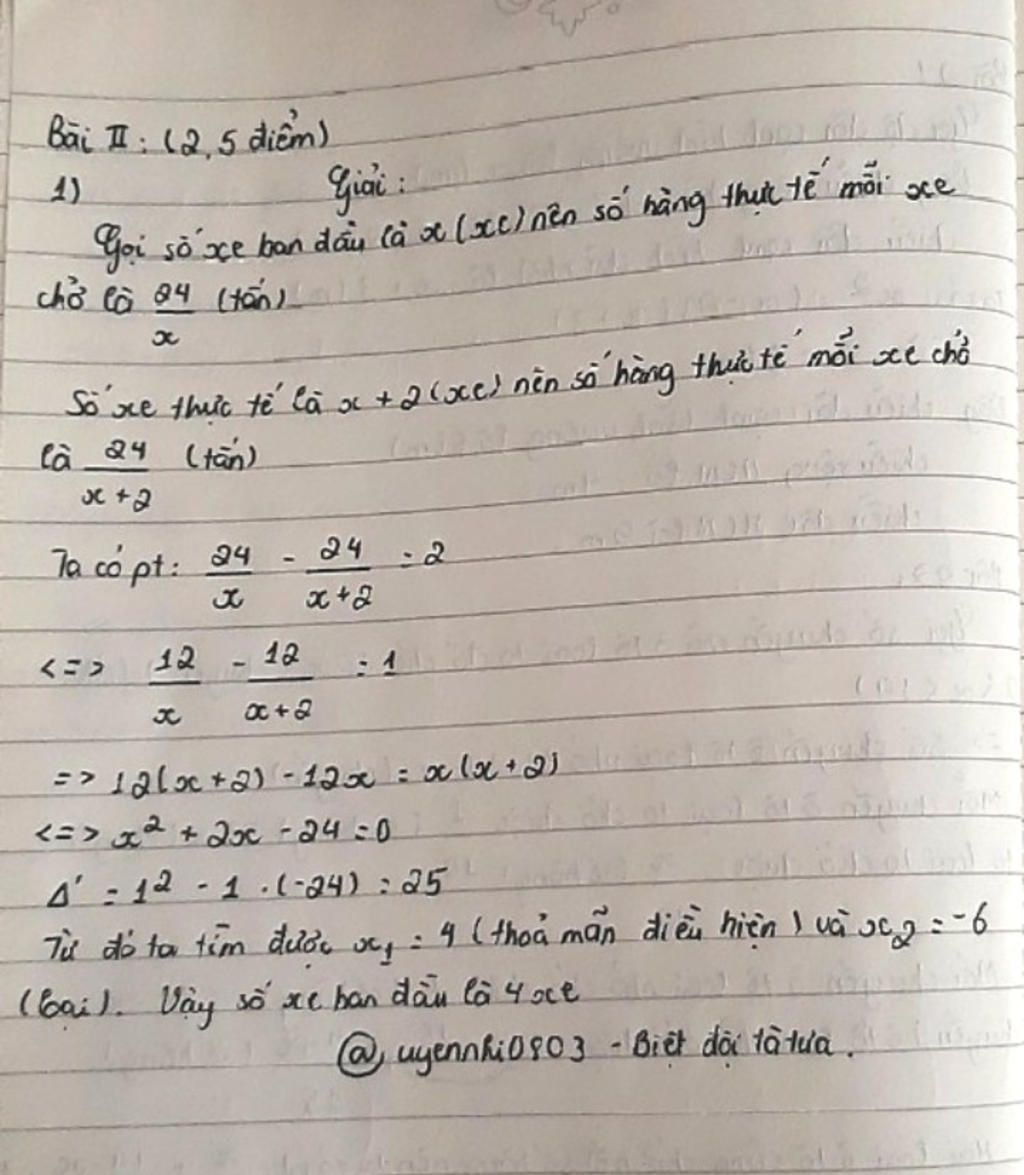 Bài II: (2,5 điểm)
1) Giải:
Gọi số xe ban đầu là x (xe) nên số hàng thực tế mỗi xe
chở là 24/x (tấn)
Số xe thực tế là x + 2 (xe) nên số hàng thực tế mỗi xe chở
là 24/(x+2) (tấn)
Ta có pt: 24/x - 24/(x+2) = 2
<=> 12/x - 12/(x+2) = 1
=> 12(x+2) - 12x = x(x+2)
<=> x² + 2x - 24 = 0
Δ' = 1² - 1 . (-24) = 25
Từ đó ta tìm được x₁ = 4 (thoả mãn điều hiện) và x₂ = -6
(loại). Vậy số xe ban đầu là 4 xe
@uyennhi0803 - Biệt đội tà tưa.